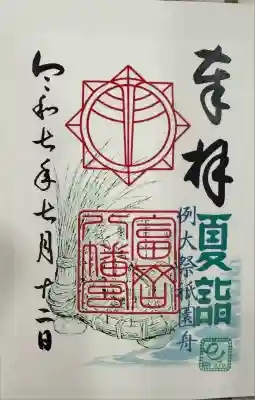 奉拝
夏詣
例大祭祇園舟
富岡
八幡宮
令和七年七月十二日